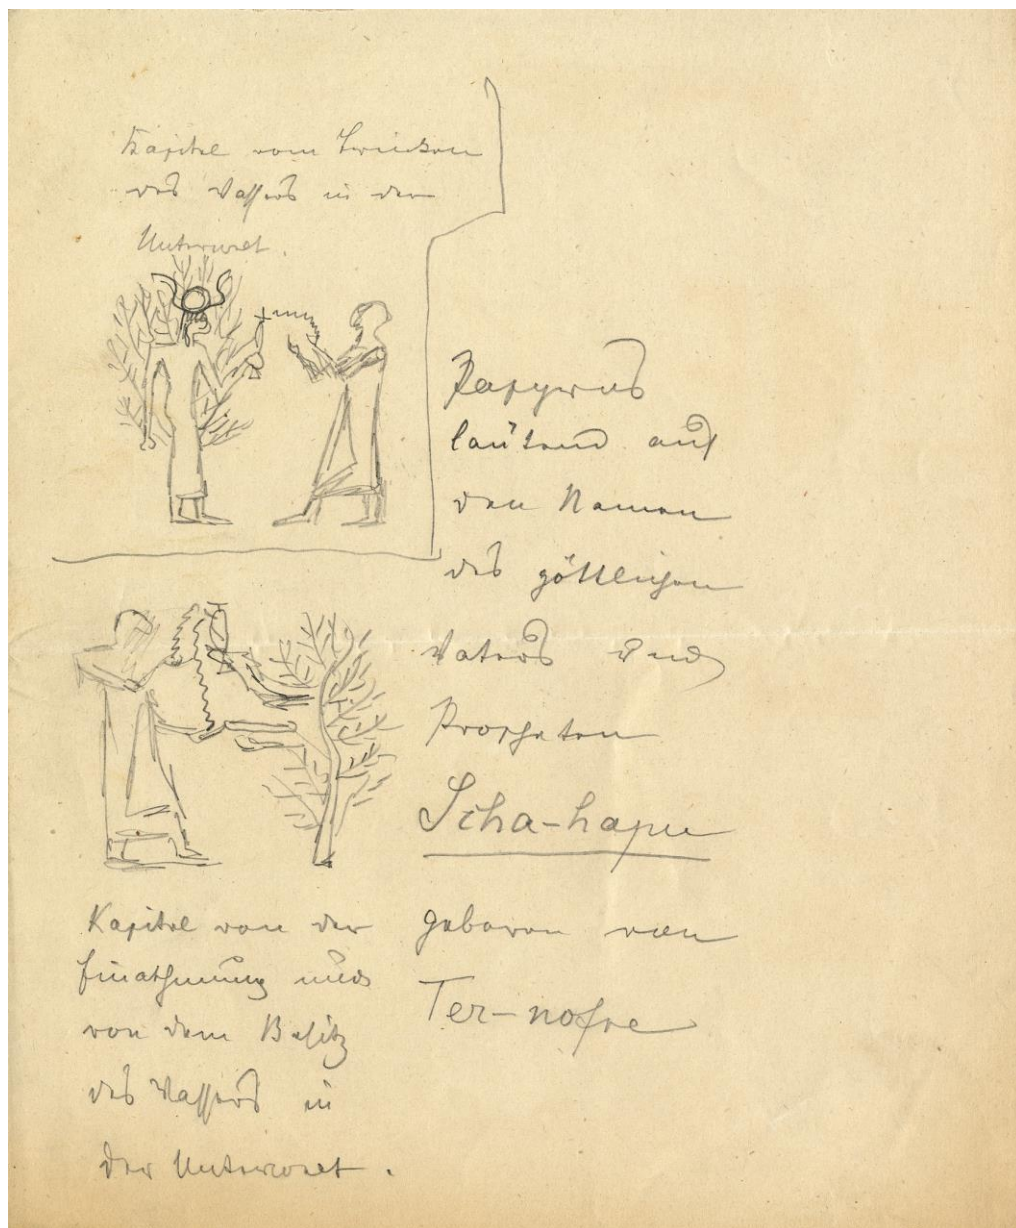 Kapitel vom Trinken
des Wassers in der
Unterwelt.
Papyrus
lautend auf
den Namen
des göttlichen
Vaters und
Propheten
Scha-hapu
geboren von
Ter-nofre
Kapitel von der
Einathmung und
von dem Besitz
des Wassers in
der Unterwelt.